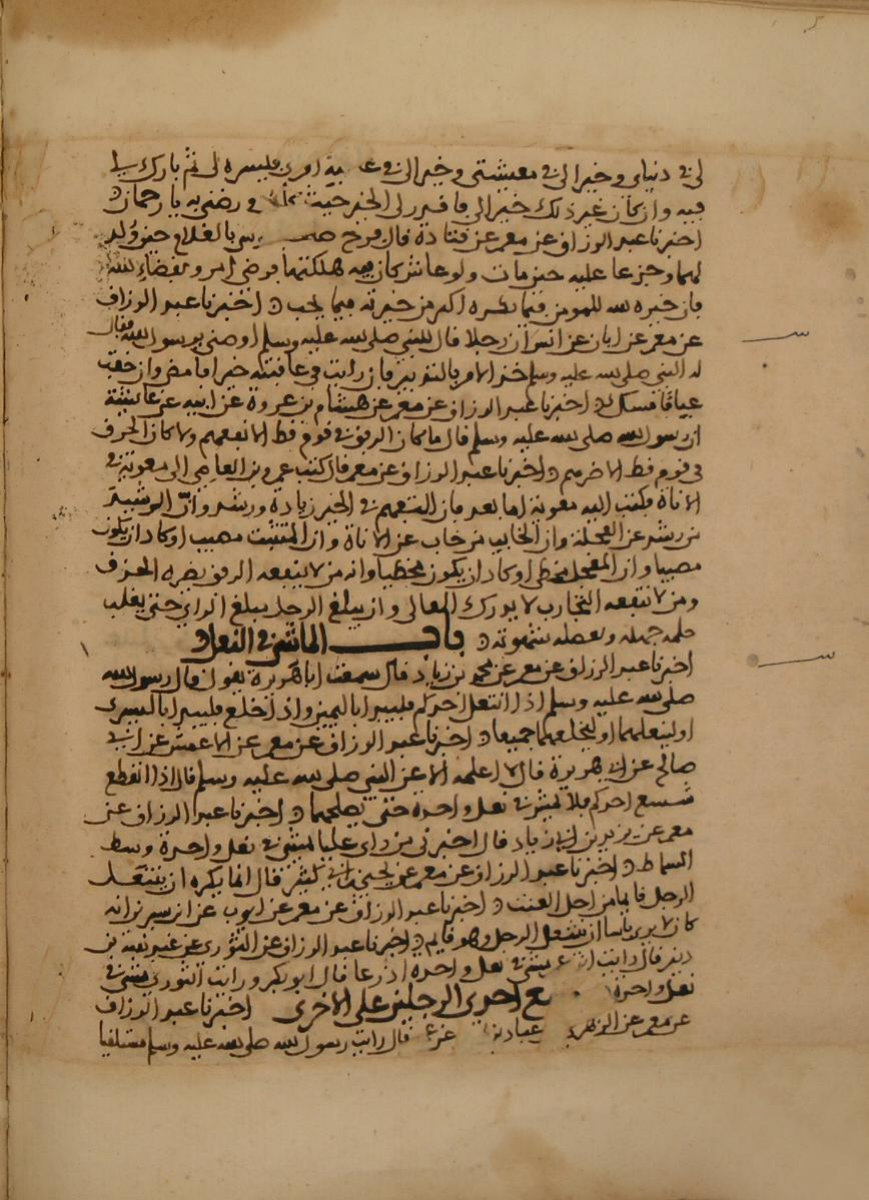 لي في دنياي وخيرا لي في معيشتي وخيرا لي في عـ ـبة امري فيسره لي ثم بارك لي
فيه وان كان غير ذلك خيرا لي فاقدر لي الخير حيث كان و رضني به يا رحمان
اخبرنا عبد الرزاق عن معمر عن قتادة قال فرح بالغلام حين ولد
لهما وجزعا عليه حين مات ولو عاش كان فيه هلكتهما فرضي امرو بقضاء الله
فان خيره الله للمومن فيما يكره اكثر من خيرته فيما يحب اخبرنا عبد الرزاق
عن معمر عن ابان عن انس ان رجلا قال للنبي صلى الله عليه وسلم اوصني يرسول الله فقال
له النبي صلى الله عليه وسلم خذ الامر بالتدبير فان رايت في عاقبته خيرا فامض وان خفت
عيافا فامسك اخبرنا عبد الرزاق عن معمر عن هشام بن عروة عن ابيه عن عائشة
ان رسول الله صلى الله عليه وسلم قال ما كان الرفق في قوم قط الا نفعهم ولا كان الخرق
في قوم قط الا ضرهم اخبرنا عبد الرزاق عن معمر قال كتب عمرو بن العاصي الى معوية في
الاناة فكتب اليه معوية اما بعد فان التفهم في الخير زيادة ورشد وان الرشيد
من رشد عن العجلة وان الخايب من خاب عن الاناة وان المتثبت مصيب او كاد ان يكون
مصيبا وان المعجل مخطي او كاد ان يكون مخطيا وانه من لا ينفعه الرفق يضره الخرق
ومن لا تنفعه التجارب لا يدرك المعالي ولن يبلغ الرجل مبلغ الراي حتى يغلب
حلمه جهله وبصله شهوته باب الماشي في النعل
اخبرنا عبد الرزاق عن معمر عن محمد بن زياد قال سمعت ابا هريرة يقول قال رسول الله
صلى الله عليه وسلم اذا انتعل احدكم فليبدا باليمين واذا خلع فليبدا باليسرى
او لينعلهما او ليخلعهما جميعا اخبرنا عبد الرزاق عن معمر عن الاعمش عن ابي
صالح عن ابي هريرة قال لا اعلمه الا عن النبي صلى الله عليه وسلم قال اذا انقطع
شسع احدكم فلا يمش في نعل واحدة حتى يصلحها اخبرنا عبد الرزاق عن
معمر عن يزيد بن ابي زياد قال اخبرني من راى عليا يمشي في نعل واحدة وسط
السماط اخبرنا عبد الرزاق عن معمر عن يحيى بن ابي كثير قال انما يكره ان ينتعل
الرجل قايما من اجل العنت اخبرنا عبد الرزاق عن معمر عن ايوب عن ابن سيرين انه
كان لا يرى باسا ان ينتعل الرجل وهو قايم اخبرنا عبد الرزاق عن الثوري عن عبد الله بن
دينر قال رايت ابن يمشي في نعل واحدة اذرعا قال ابو بكر ورايت الثوري يمشي في
نعل واحدة ـع احدى الرجلين على الاخرى اخبرنا عبد الرزاق
عن معمر عن الزهري عباد بن عن قال رايت رسول الله صلى الله عليه وسلم مستلقيا